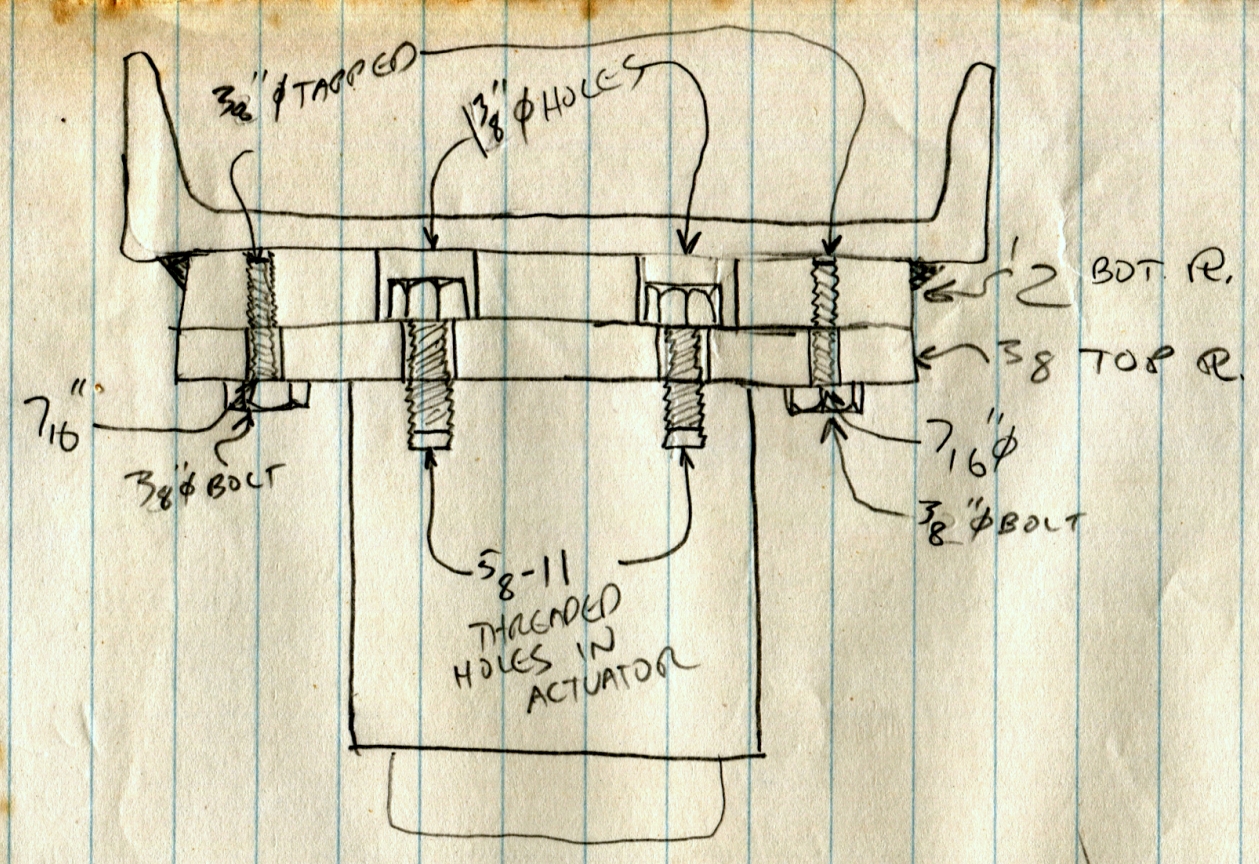 3/8"ø TAPPED
1 3/8"ø HOLES
1/2 BOT PL.
3/8 TOP PL.
7/16"
3/8"ø BOLT
7/16"ø
3/8"ø BOLT
5/8-11
THREADED
HOLES IN
ACTUATOR